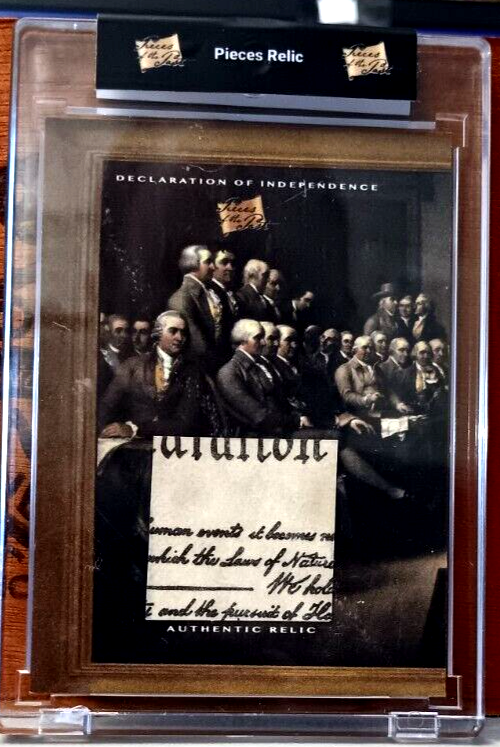 Pieces
of the Past
Pieces Relic
Pieces
of the Past
DECLARATION OF INDEPENDENCE
Pieces
of the Past
aration
uman events it becomes ne
which the Laws of Nature
We hol
and the pursuit of Ha
AUTHENTIC RELIC